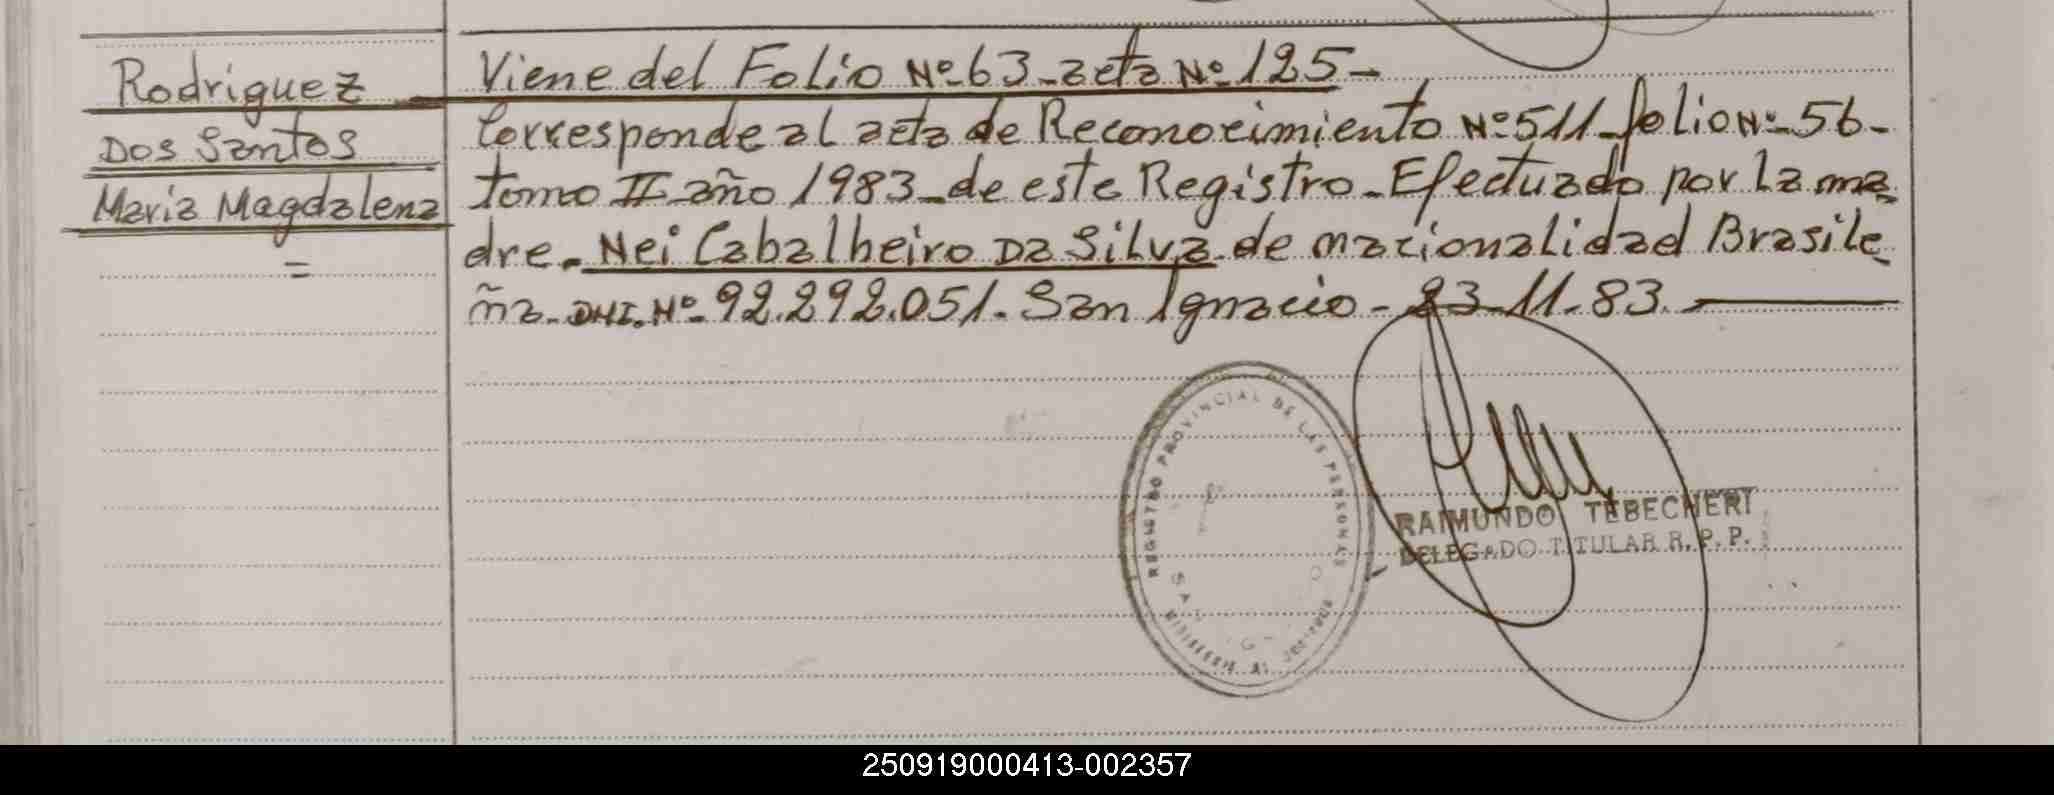 Rodriguez
Dos Santos
Maria Magdalena
=
Viene del Folio Nº 63 - acta Nº 125 -
Corresponde al acta de Reconocimiento Nº 511 - folio Nº 56 -
tomo II año 1983 - de este Registro - Efectuado por la ma
dre - Nei Cabalheiro Da Silva - de nacionalidad Brasile
ña - DNI. Nº 92.292.051. San Ignacio - 23-11-83.
REGISTRO PROVINCIAL DE LAS PERSONAS
RAIMUNDO TEBECHERI
DELEGADO TITULAR R. P. P.
250919000413-002357